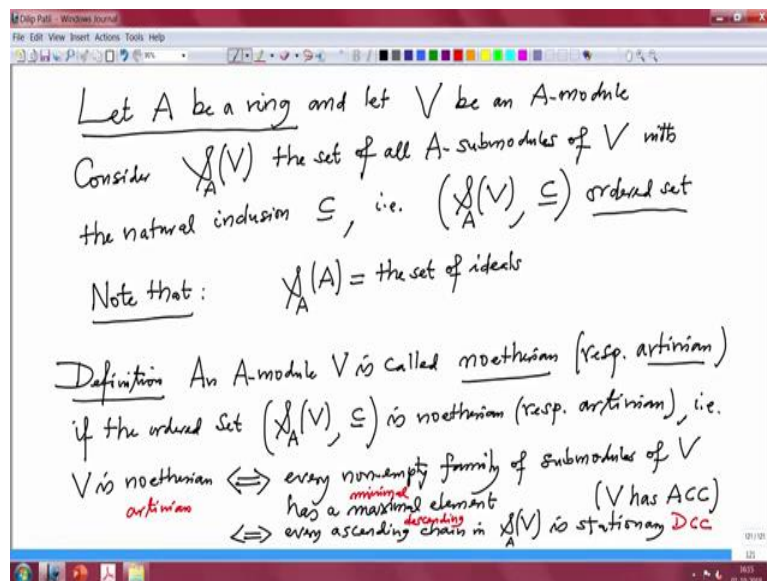 Dilip Patil - Windows Journal
File Edit View Insert Actions Tools Help
Let A be a ring and let V be an A-module
Consider 𝒮_A(V) the set of all A-submodules of V with
the natural inclusion ⊆, i.e. (𝒮_A(V), ⊆) ordered set
Note that: 𝒮_A(A) = the set of ideals
Definition An A-module V is called noetherian (resp. artinian)
if the ordered set (𝒮_A(V), ⊆) is noetherian (resp. artinian), i.e.
V is noetherian ⟺ every non-empty family of submodules of V
artinian minimal
has a maximal element (V has ACC)
descending
⟺ every ascending chain in 𝒮_A(V) is stationary DCC
121/121
121
16:15